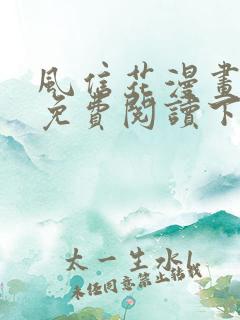 風信花漫畫
免費閱讀下
太一生水l
未经同意禁止转载